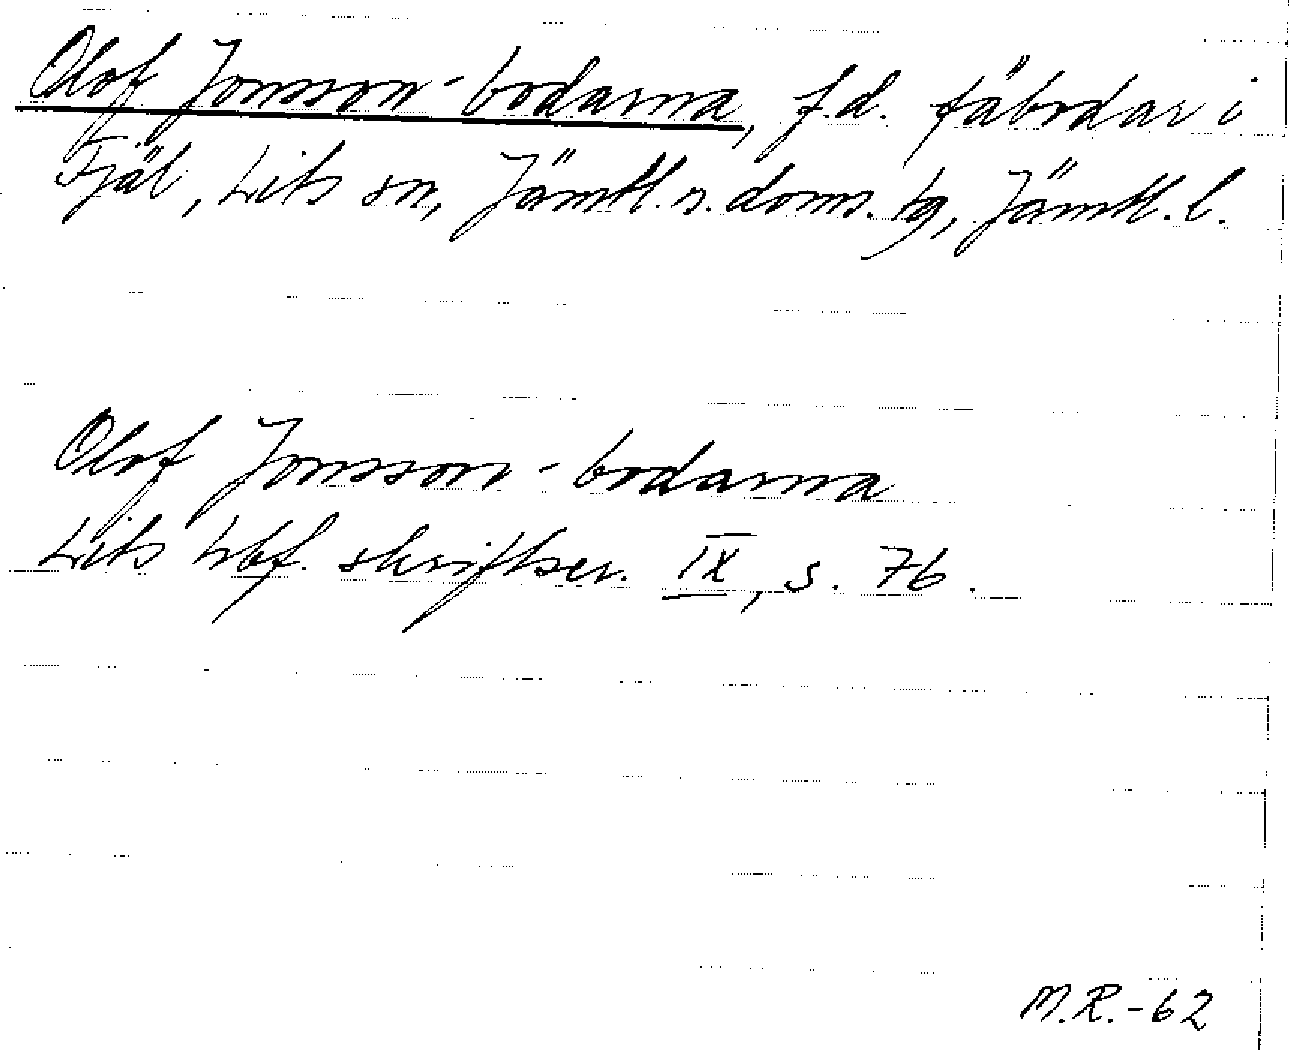 Olof Jonsson-bodarna, f.d. fäbodar i
Fjäl, Lits sn, Jämtl. n. doms. tg, Jämtl. l.
Olof Jonsson-bodarna
Lits Hbf. skriftser. IX, s. 76.
M.R.-62